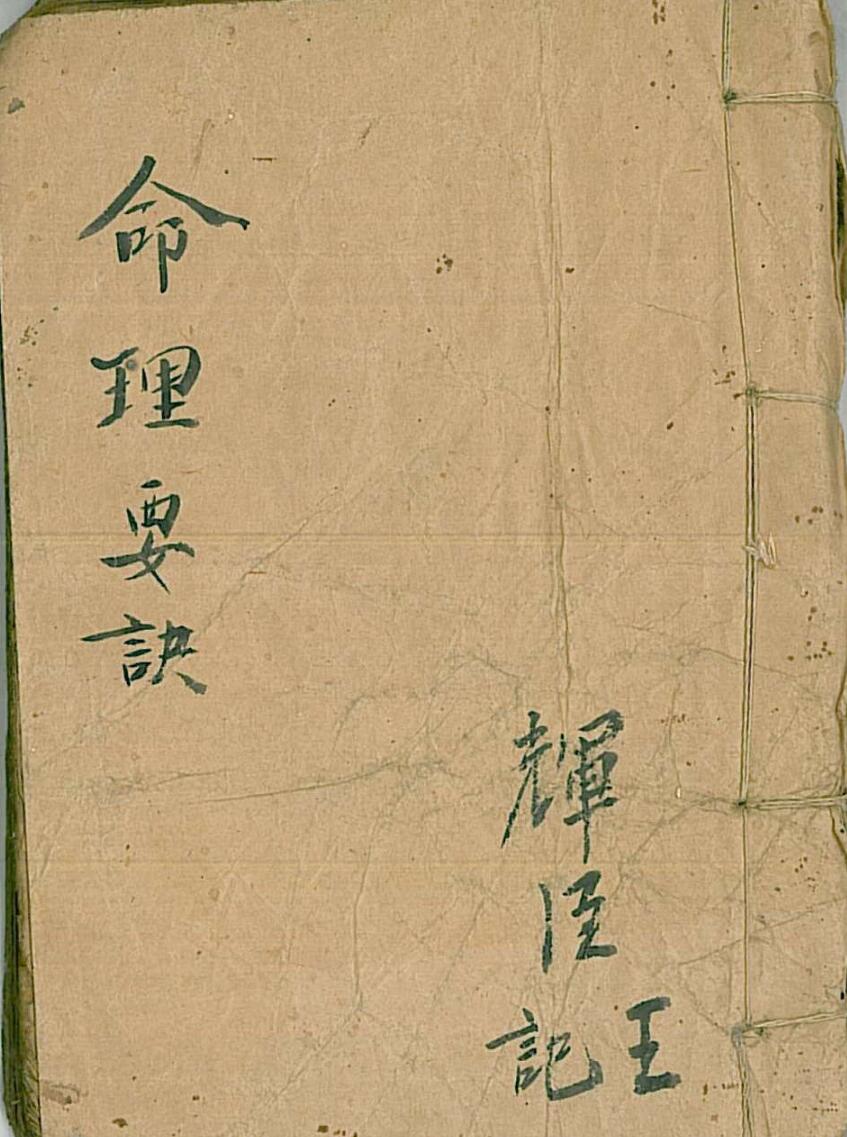 命理要訣
輝臣記
王